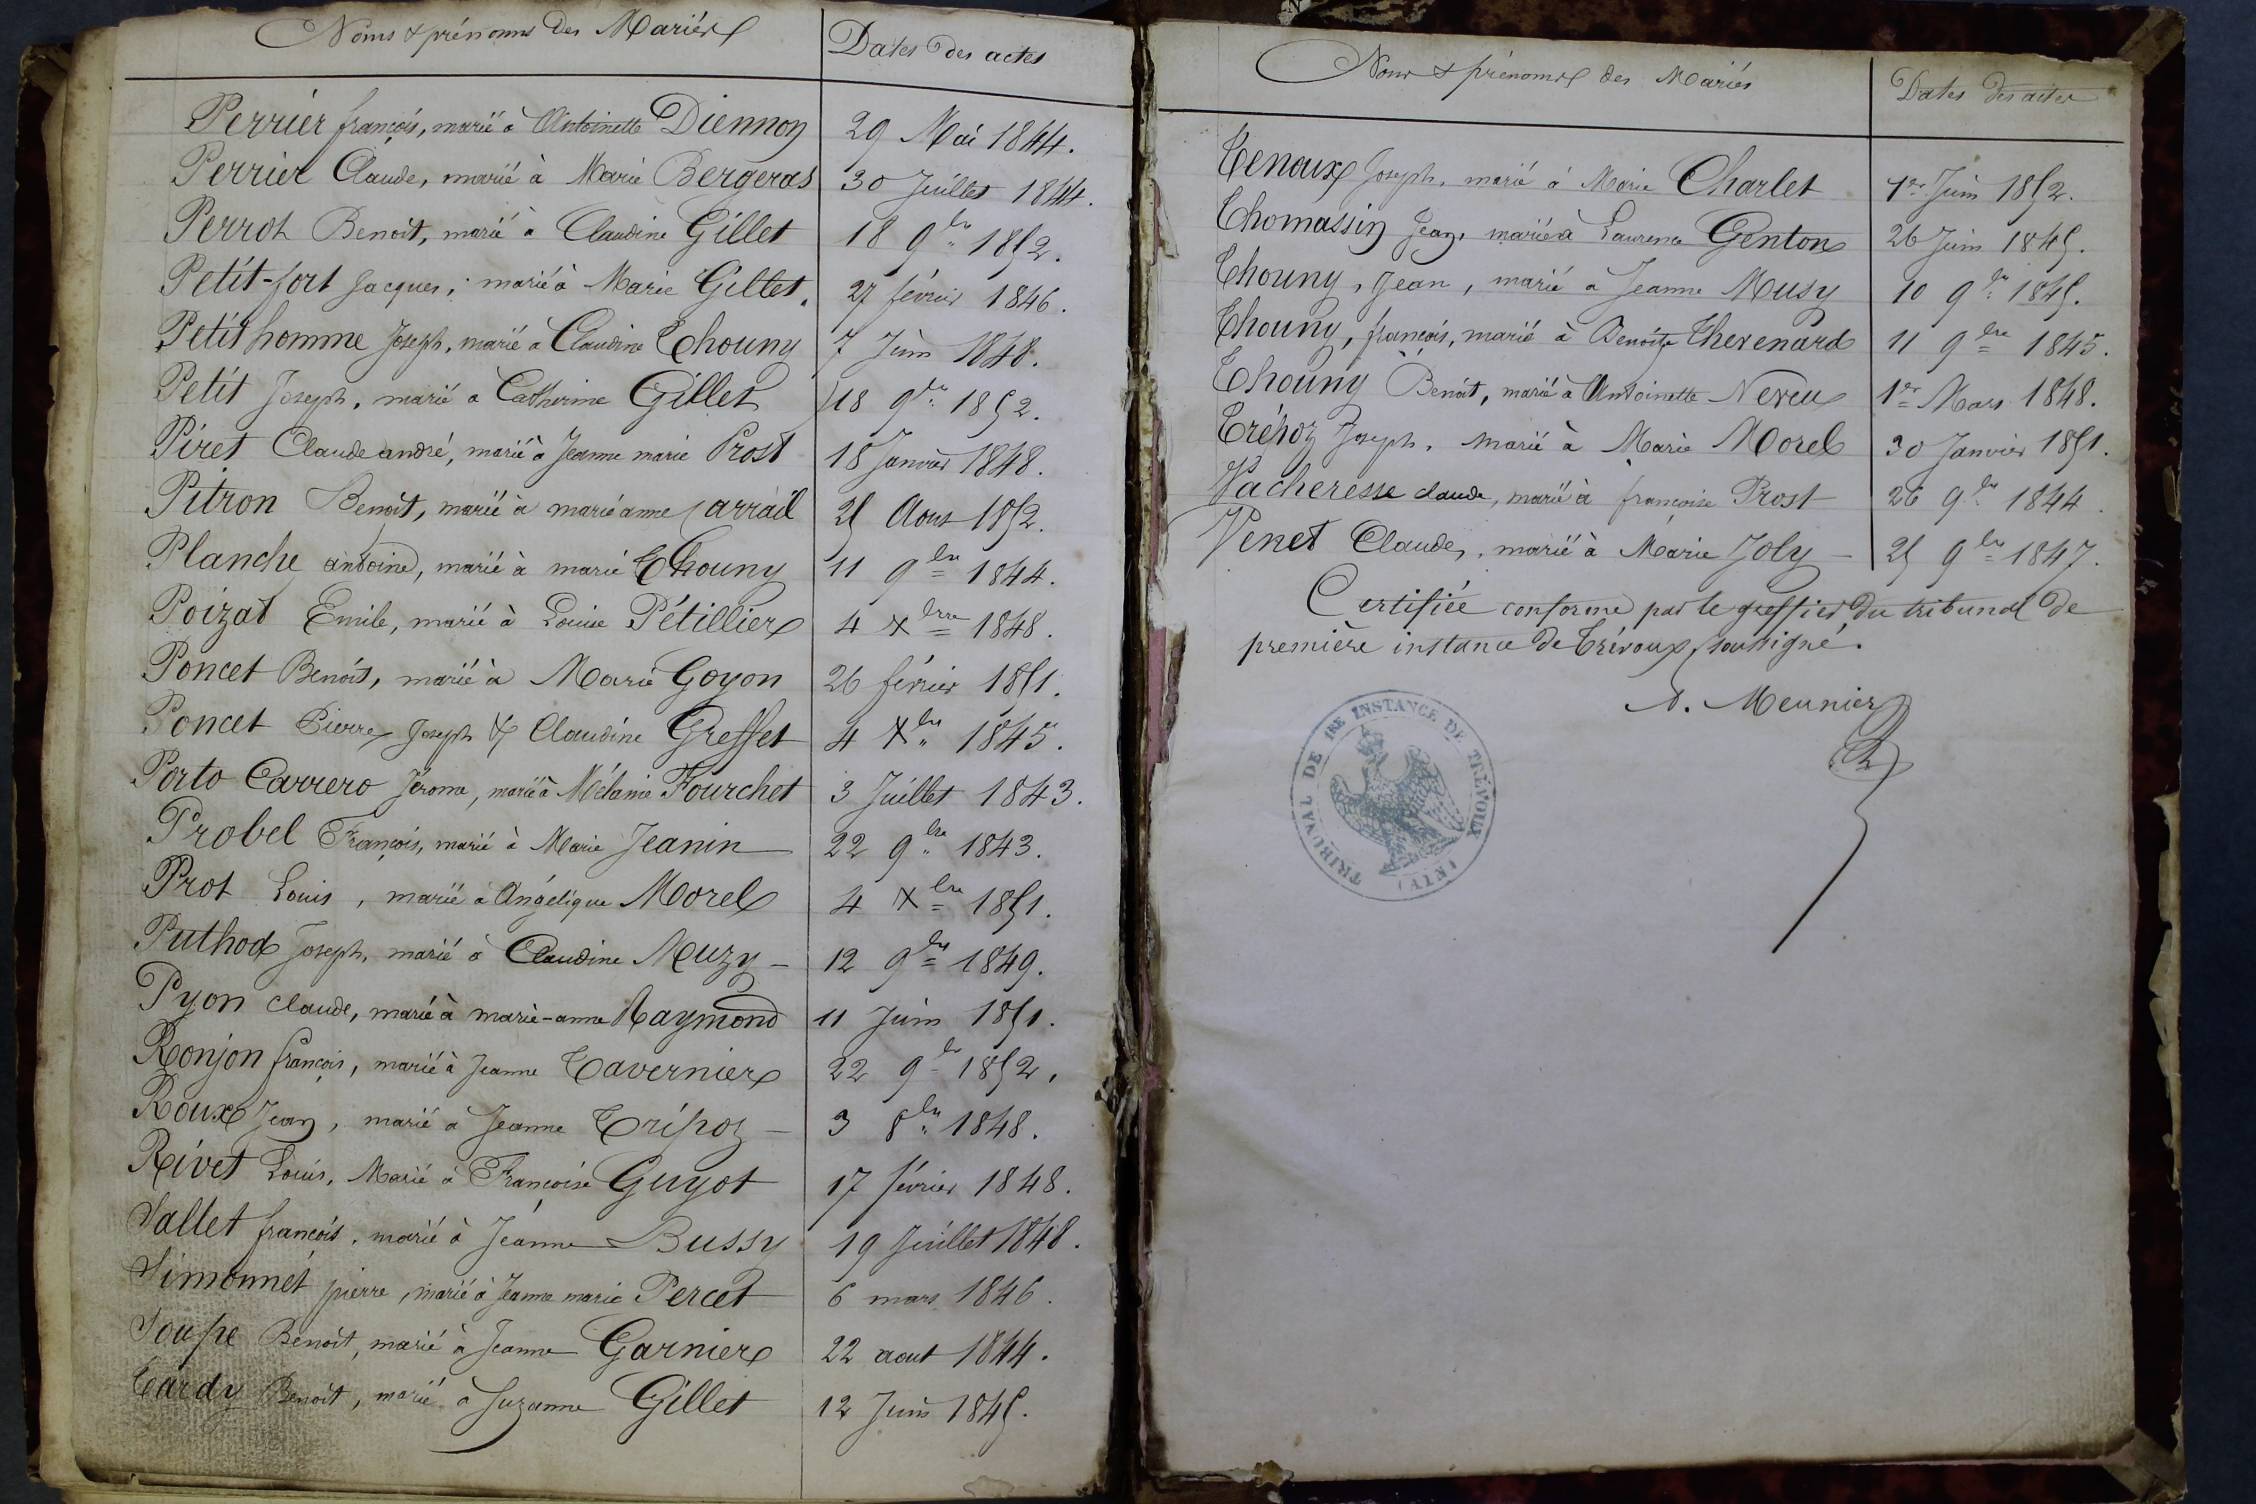 Noms & prénoms des Mariés
Dates des actes
Perrier françois, marié à Antoinette Diennon 29 Mai 1844.
Perrier Claude, marié à Marie Bergeras 30 Juillet 1844.
Perrot Benoit, marié à Claudine Gillet 18 9bre 1852.
Petit-fort Jacques, marié à Marie Gillet. 27 février 1846.
Petit homme Joseph, marié à Claudine Thouny 7 Juin 1848.
Petit Joseph, marié à Catherine Gillet 18 9bre 1852.
Piret Claude andré, marié à Jeanne marie Prost 18 Janvier 1848.
Pitron Benoit, marié à marie anne Carrail 25 Aout 1852.
Planche antoine, marié à marie Thouny 11 9bre 1844.
Poizat Emile, marié à Louise Pétillier 4 Xbre 1848.
Poncet Benoit, marié à Marie Goyon 26 février 1851.
Poncet Pierre Joseph & Claudine Greffet 4 Xbre 1845.
Porto Carrero Jérome, marié à Mélanie Fourchet 3 Juillet 1843.
Probel François, marié à Marie Jeanin 22 9bre 1843.
Prot Louis, marié à Angélique Morel 4 Xbre 1851.
Puthod Joseph, marié à Claudine Muzy - 12 9bre 1849.
Pyon claude, marié à marie-anne Raymond 11 Juin 1851.
Ronjon françois, marié à Jeanne Tavernier 22 9bre 1852.
Roux Jean, marié à Jeanne Trépoz - 3 8bre 1848.
Rivet Louis, Marié à Françoise Guyot 17 février 1848.
Sallet françois, marié à Jeanne Bussy 19 Juillet 1848.
Simonnet pierre, marié à Jeanne marie Percet 6 mars 1846.
Soupe Benoit, marié à Jeanne Garnier 22 aout 1844.
Tardy Benoit, marié à Suzanne Gillet 12 Juin 1845.
Noms & prénoms des Mariés
Dates des actes
Tenoux Joseph, marié à Marie Charlet 1er Juin 1852.
Thomassin Jean, marié à Laurence Genton 26 Juin 1845.
Thouny, Jean, marié à Jeanne Musy 10 9bre 1845.
Thouny, françois, marié à Benoite Thevenard 11 9bre 1845.
Thouny Benoit, marié à Antoinette Neveu 1er Mars 1848.
Trépoz Joseph, marié à Marie Morel 30 Janvier 1851.
Vacheresse claude, marié à françoise Prost 26 9bre 1844.
Venet Claude, marié à Marie Joly - 25 9bre 1847.
Certifiée conforme par le greffier du tribunal de
première instance de Trévoux, soussigné.
A. Meunier
TRIBUNAL DE 1RE INSTANCE DE TREVOUX (AIN)